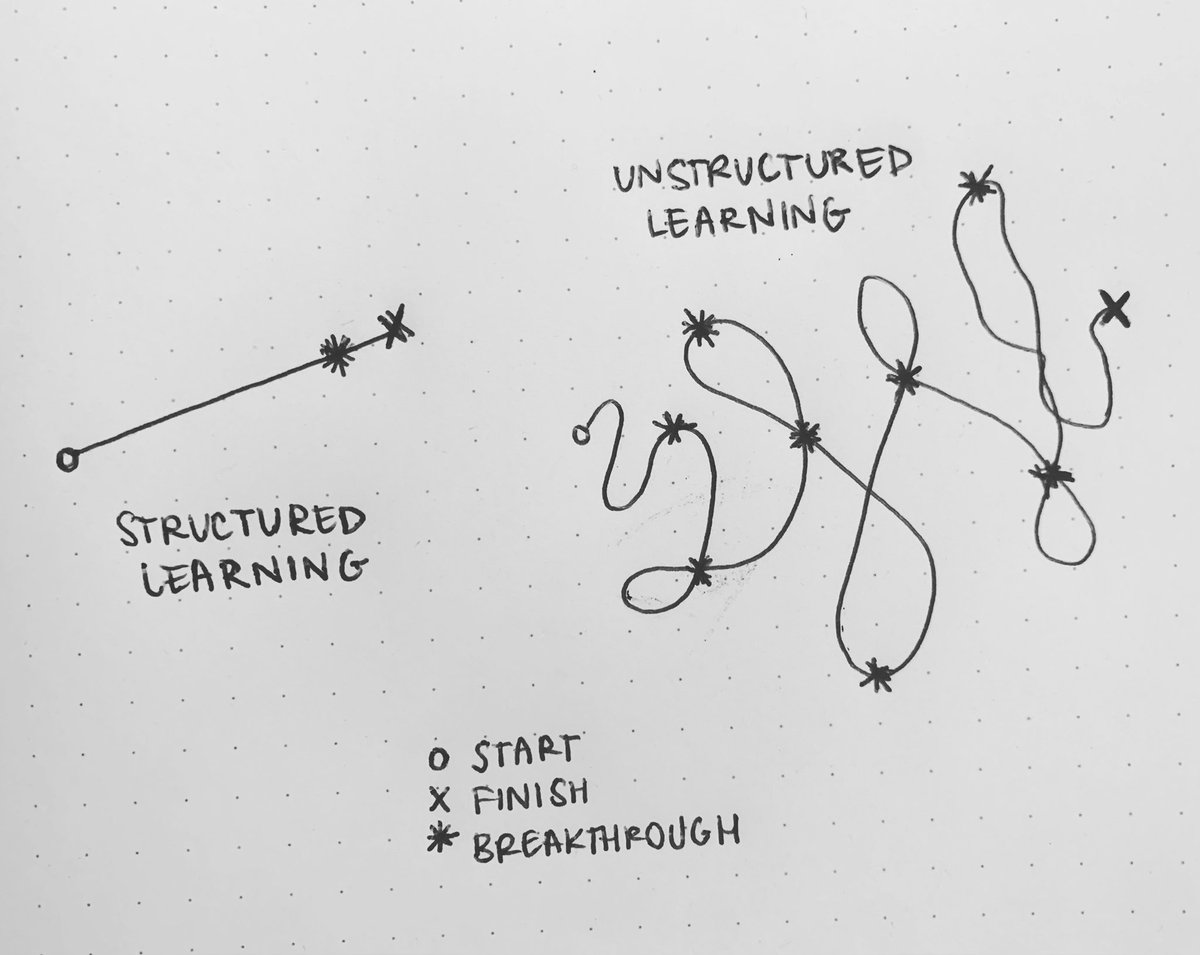 UNSTRUCTURED
LEARNING
STRUCTURED
LEARNING
O START
X FINISH
* BREAKTHROUGH